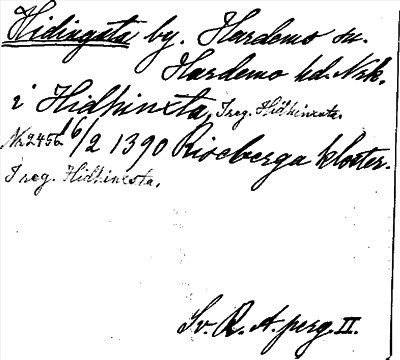 Hidingsta by. Hardemo sn.
Hardemo hd. Nrk.
i Hidhinxta, I reg. Hidhinxsta.
Nr 2456. 6/2 1390 Riseberga kloster.
I reg. Hidhinxsta.
Sv. R. A. perg. II.